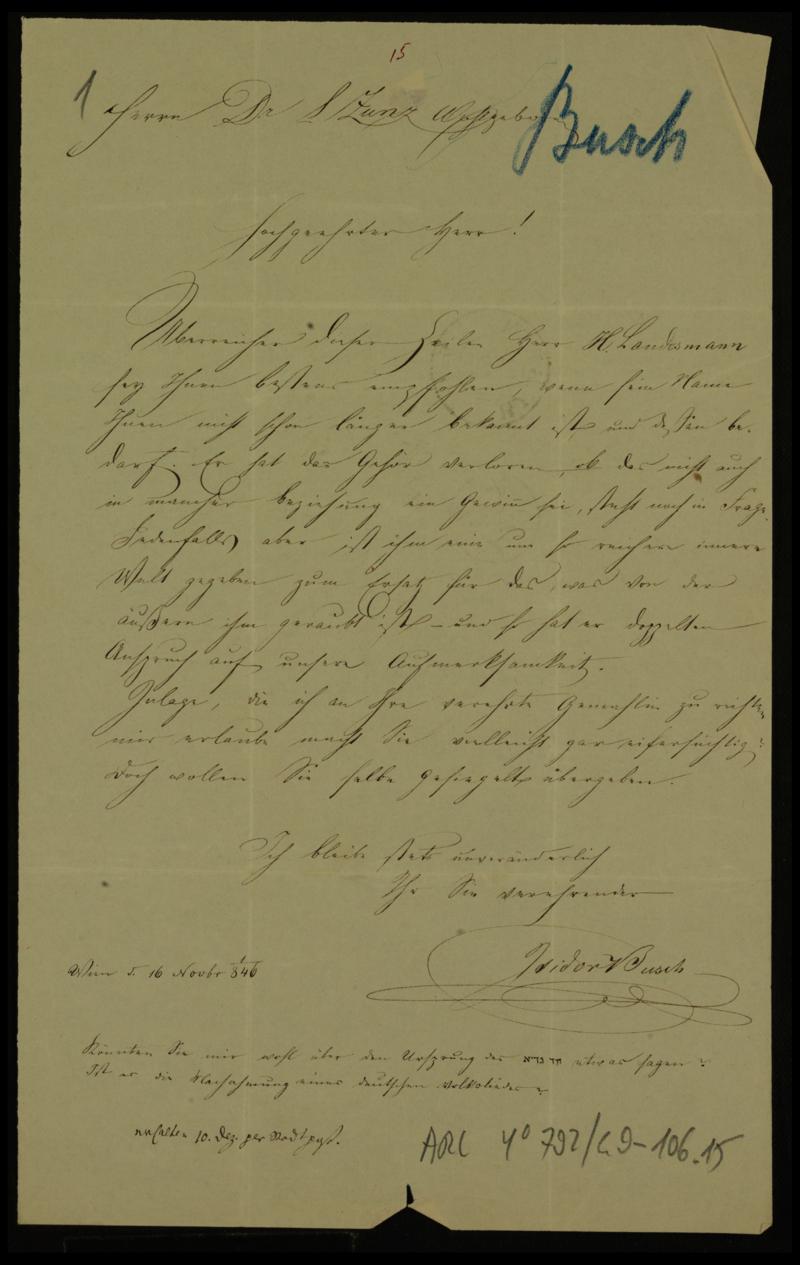 15
1
Herrn Dr L Zunz Wohlgeboren
Busch
Hochgeehrter Herr!
Überreicher dieser Zeilen Herr H. Landesmann
sey Ihnen bestens empfohlen, wenn sein Name
Ihnen nicht schon länger bekannt ist und dessen be-
darf. Er hat das Gehör verloren, ob das nicht auch
in mancher Beziehung ein Gewinn sei, steht noch in Frage.
Jedenfalls aber ist ihm eine um so reichere innere
Welt gegeben zum Ersatz für das, was von der
äußern ihm geraubt ist – und so hat er doppelten
Anspruch auf unsere Aufmerksamkeit.
Inlage, die ich an Ihre verehrte Gemahlin zu richten
mir erlaube macht Sie vielleicht gar eifersüchtig;
doch wollen Sie selbe gesiegelt übergeben.
Ich bleibe stets unveränderlich
Ihr Sie verehrender
Isidor Busch
Wien d. 16 Novbr 1846
Könnten Sie mir wohl über den Ursprung des חד גדיא etwas sagen?
Ist es die Nachahmung eines deutschen Volksliedes?
erhalten 10. Dez. per Stadtpost.
ARC 4° 792/G9-106.15